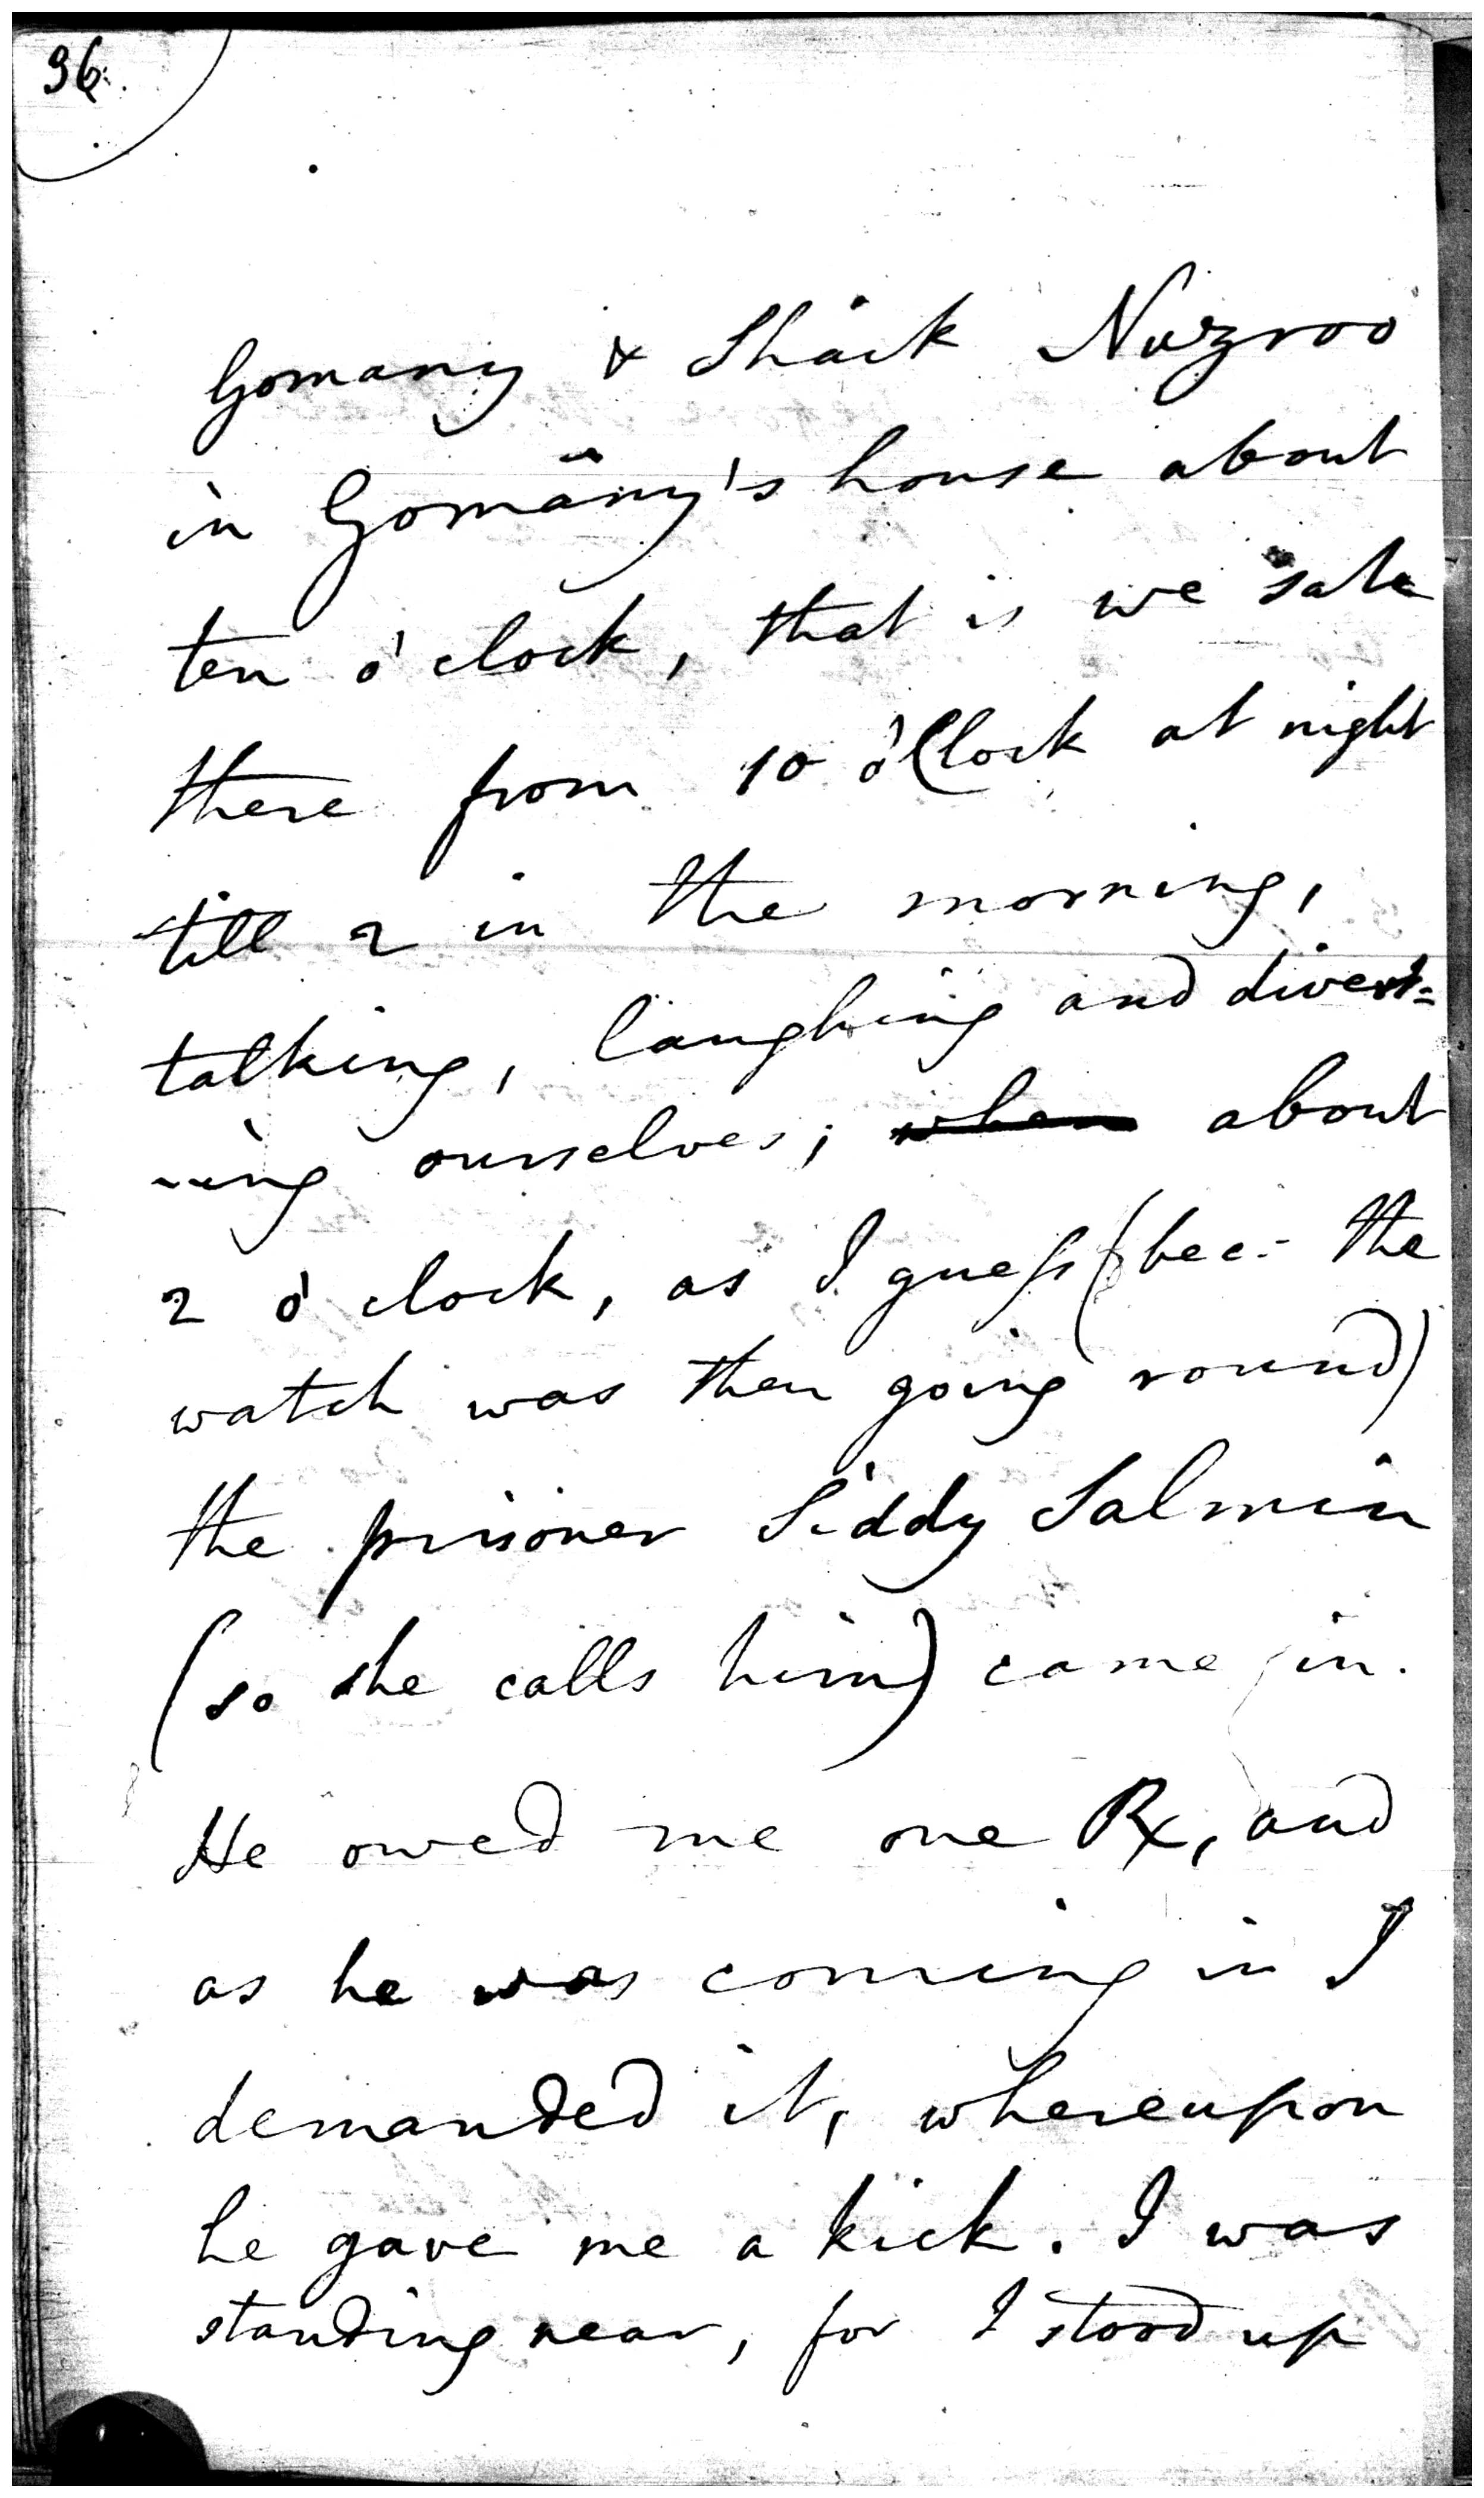 96.
Gomany & Shaik Nuzroo
in Gomany's house about
ten o'clock, that is we sate
there from 10 o'Clock at night
till 2 in the morning,
talking, laughing and divert=
-ing ourselves; when about
2 o'clock, as I guess (bec: the
watch was then going round)
the prisoner Siddy Salmin
(so she calls him) came in.
He owed me one Rx, and
as he was coming in I
demanded it, whereupon
he gave me a kick. I was
standing near, for I stood up